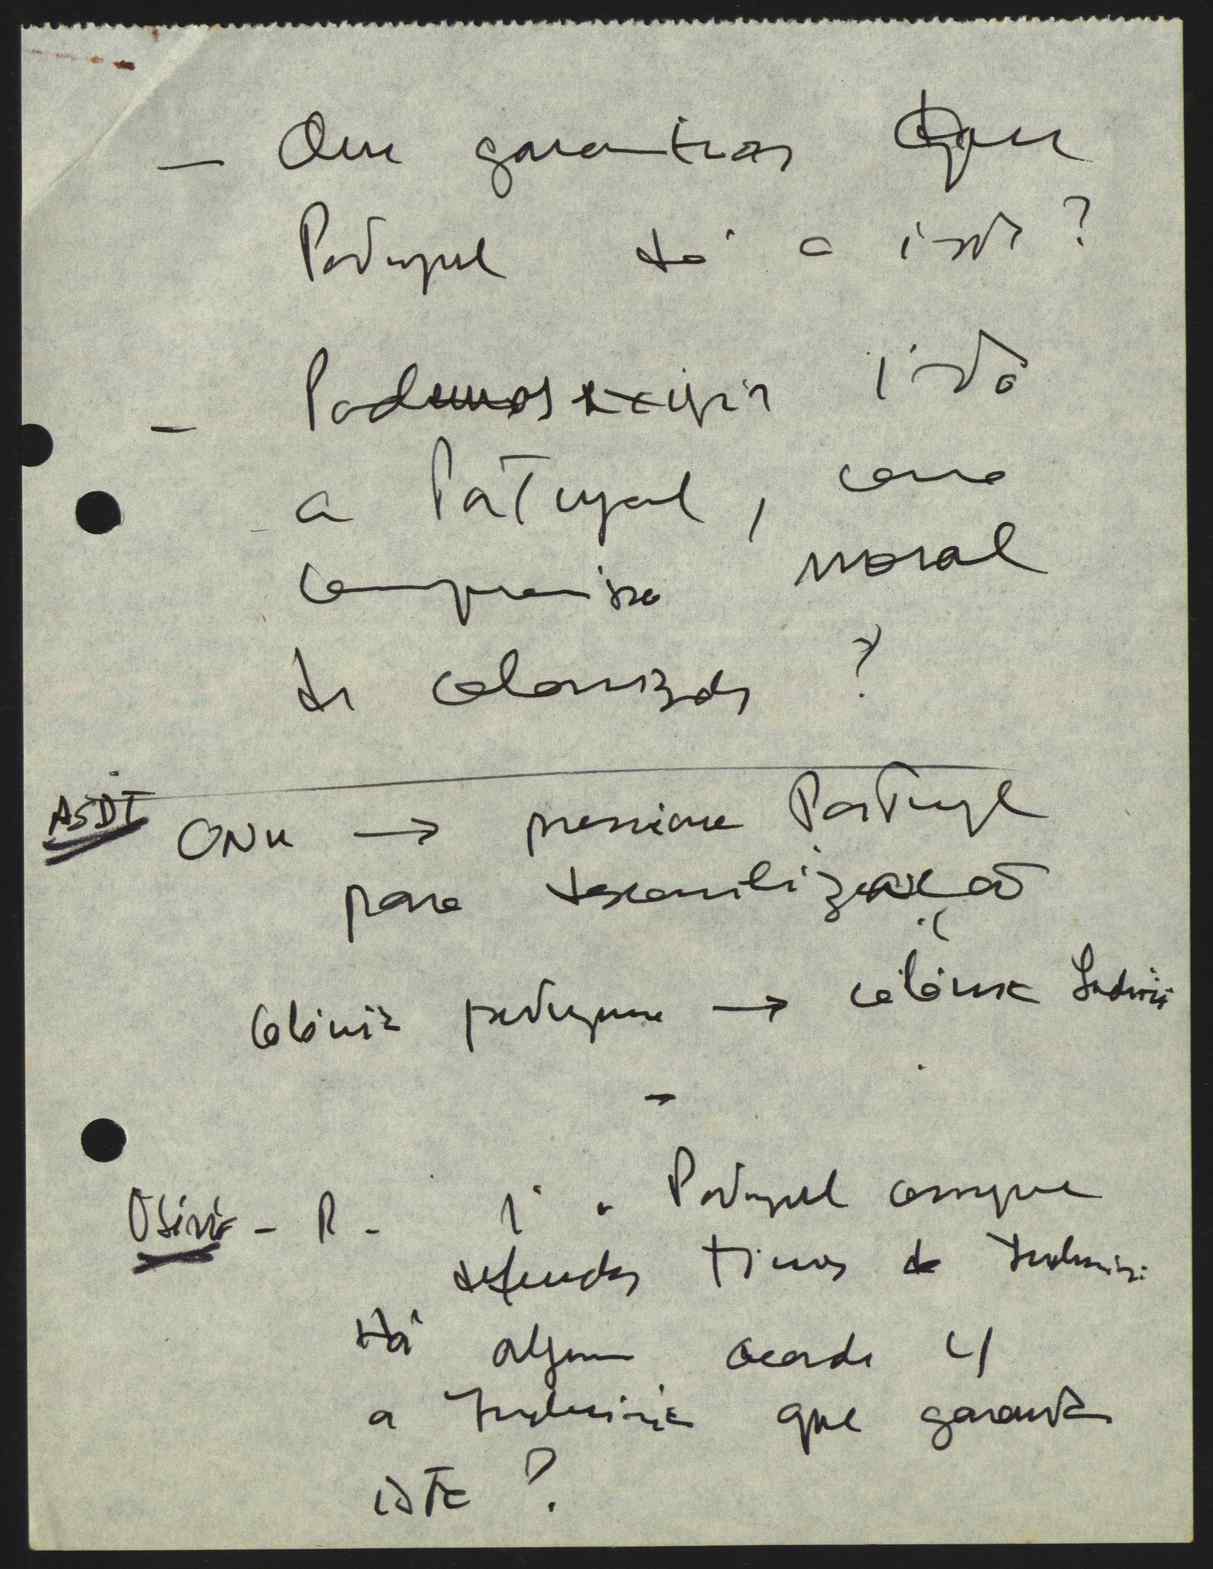 — Que garantias que
Portugal dá a isto?
— Podemos exigir isto
a Portugal, como
compromisso moral
de colonizador?
ASDT ONU → pressione Portugal
para descolonização
Colónia portuguesa → colónia Indonésia
—
Obino - R - 1º. Portugal consegue
defender Timor da Indonésia
Há algum acordo c/
a Indonésia que garanta
isto?